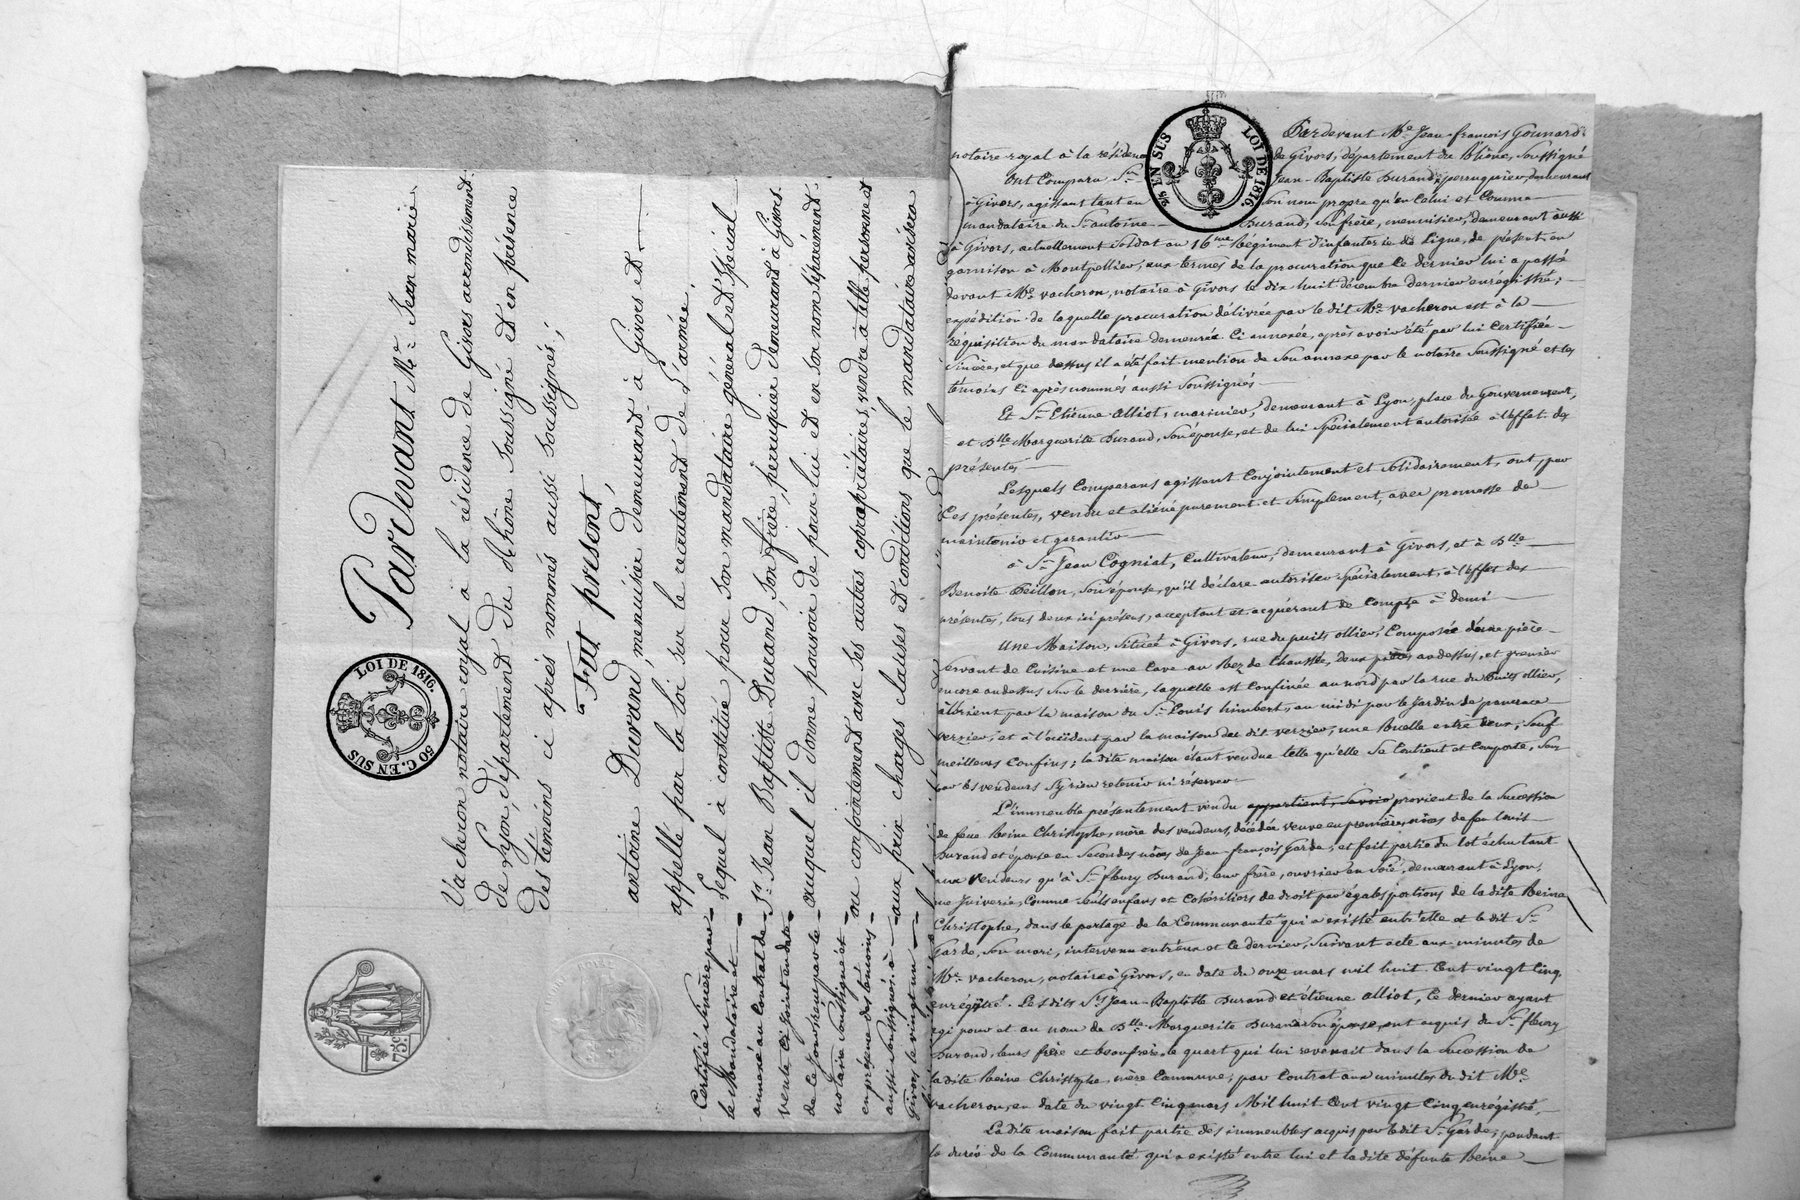 ParDevant Me. Jean marie
Vacheron notaire royal à la résidence de Givors arrondissement
de Lyon, département du Rhône soussigné et en présence
des témoins ci après nommés aussi soussignés;
Fut présent,
antoine Durand, menuisier demeurant à Givors et
appellé par la loi sur le recrutement de l'armée,
Lequel à constitué pour son mandataire général et spécial
Sr. Jean Baptiste Durand, son frère, perruquier demeurant à Givors
auquel il donne pouvoir de pour lui et en son nom séparément
ou conjointement avec ses autres copropriétaires, vendre à telle personne et
aux prix charges clauses et conditions que le mandataire avisera
LOI DE 1816.
50 C. EN SUS
75c
Certifié sincère par
le Mandataire et
annexé au Contrat de
vente ci joint en date
de ce jour reçu par le
notaire soussigné et
en présence des témoins
aussi soussignés. à
Givors le vingt un
Pardevant Me. Jean-françois Gounard
notaire royal à la résidence de Givors, département du Rhône, soussigné
Ont Comparu Sr. Jean-Baptiste Durand, perruquier, demeurant
à Givors, agissant tant en son nom propre qu'en celui et Comme
mandataire du Sr. antoine Durand, son frère, menuisier, demeurant aussi
à Givors, actuellement soldat au 16me. Régiment d'infanterie de Ligne, de présent en
garnison à Montpellier, aux termes de la procuration que ce dernier lui a passé
devant Me. vacheron, notaire à Givors le dix huit décembre dernier enrégistrée;
expédition de laquelle procuration délivrée par le dit Me. vacheron est à la
réquisition du mandataire demeurée Ci annexée, après avoir été par lui certifiée
sincère, et que dessus il a été fait mention de son annexe par le notaire soussigné et les
témoins Ci après nommés aussi soussignés
Et Sr. Etienne Alliot, marinier, demeurant à Lyon, place du Gouvernement,
et Dlle Marguerite Durand, son épouse, et de lui spécialement autorisée à l'effet des
présentes
Lesquels Comparans agissant Conjointement et solidairement, ont, par
Ces présentes, vendu et aliéné purement et simplement, avec promesse de
maintenir et garantir
à Sr. Jean Cogniat, Cultivateur, demeurant à Givors, et à Dlle
Benoite Teillon, son épouse, qu'il déclare autoriser spécialement, à l'effet des
présentes, tous deux ici présens, acceptant et acquérant de Compte à demi
Une Maison, située à Givors, rue du puits ollier, Composée d'une pièce
servant de Cuisine et une Cave au Rez de Chaussée, deux pièces au dessus, et grenier
encore au dessus sur le derrière, laquelle est Confinée au nord par la rue du Puits ollier,
à l'orient par la maison du Sr. Louis himbert, au midi par le Jardin de
verzier, et à l'occident par la maison du dit verzier, une Ruelle entre deux, sauf
meilleurs Confins; la dite maison étant vendue telle qu'elle se Contient et Comporte, sans
par les vendeurs s'y rien retenir ni réserver
L'immeuble présentement vendu appartient, savoir provient de la succession
de feue Reine Christophe, mère des vendeurs, décédée veuve en premières nôces de feu Louis
Durand et épouse en secondes nôces de Jean-françois Garde, et fait partie du lot échu tant
aux vendeurs qu'à Sr. fleury Durand, leur frère, ouvrier en soie, demeurant à Lyon,
rue Juiverie, Comme seuls enfans et Cohéritiers de droit par égales portions de la dite Reine
Christophe, dans le partage de la Communauté qui a existé entr'elle et le dit Sr.
Garde, son mari, intervenu entr'eux et le dernier, suivant acte aux minutes de
Me. vacheron, notaire à Givors, en date du onze mars mil huit Cent vingt Cinq
enrégistré. Les dits Srs Jean-Baptiste Durand et étienne Alliot, Ce dernier ayant
agi pour et au nom de Dlle Marguerite Durand son épouse, ont acquis du Sr. fleury
Durand, leurs frère et beaufrère, le quart qui lui revenait dans la succession de
la dite Reine Christophe, mère Commune, par Contrat aux minutes du dit Me.
vacheron, en date du vingt Cinq mars Mil huit Cent vingt Cinq enrégistré,
La dite maison fait partie des immeubles acquis par le dit Sr. Garde, pendant
la durée de la Communauté qui a existé entre lui et la dite défunte Reine
LOI DE 1816.
EN SUS